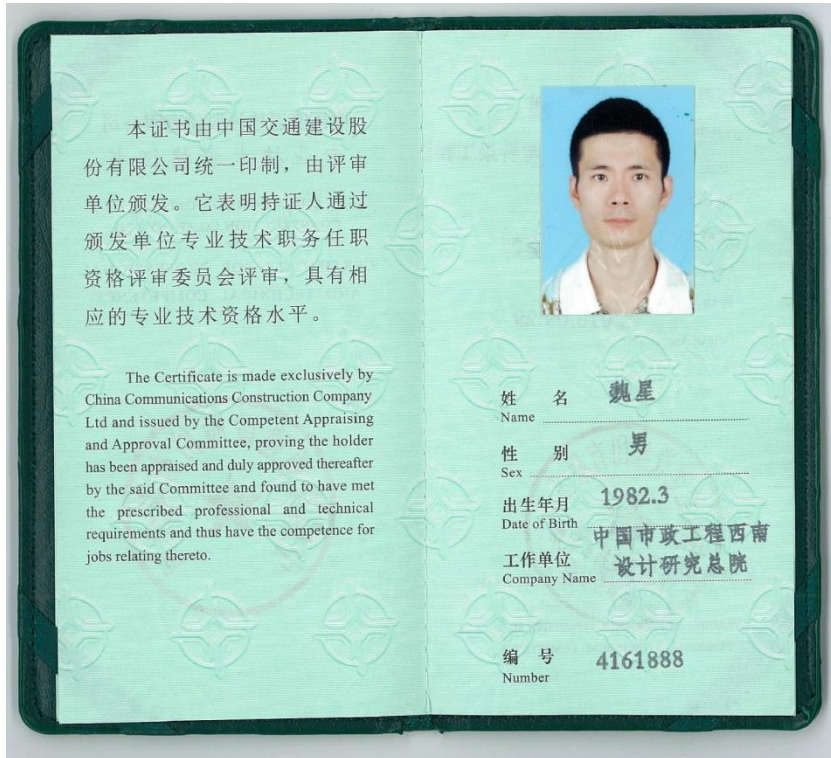 本证书由中国交通建设股
份有限公司统一印制，由评审
单位颁发。它表明持证人通过
颁发单位专业技术职务任职
资格评审委员会评审，具有相
应的专业技术资格水平。
The Certificate is made exclusively by
China Communications Construction Company
Ltd and issued by the Competent Appraising
and Approval Committee, proving the holder
has been appraised and duly approved thereafter
by the said Committee and found to have met
the prescribed professional and technical
requirements and thus have the competence for
jobs relating thereto.
姓 名 魏星
Name
性 别 男
Sex
出生年月 1982.3
Date of Birth
中国市政工程西南
工作单位 设计研究总院
Company Name
编 号 4161888
Number